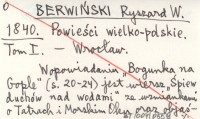 BERWIŃSKI Ryszard W.
1840. Powieści wielko-polskie.
Tom I. – Wrocław.
W opowiadaniu "Bogunka na
Gople" (s. 20-24) jest wiersz "Śpiew
duchów nad wodami" ze wzmianką
o Tatrach i Morskim Oku oraz